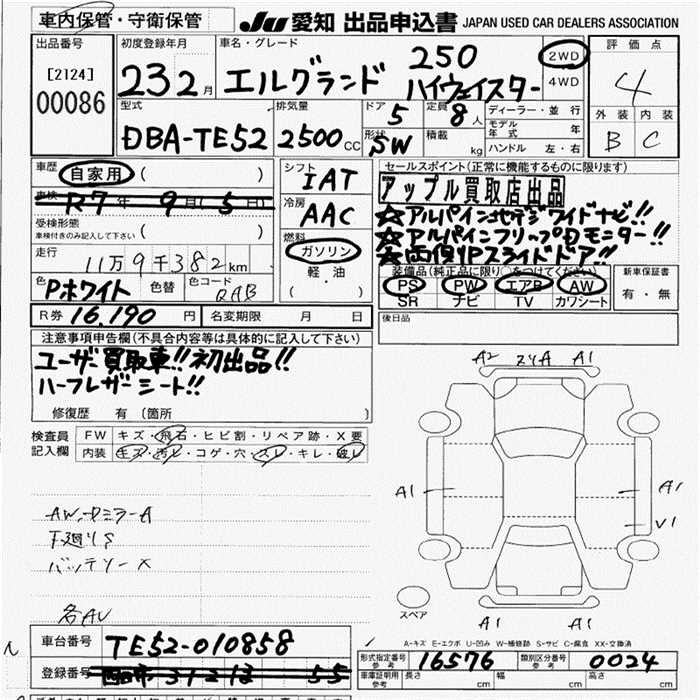 車内保管・守衛保管
JU 愛知 出品申込書 JAPAN USED CAR DEALERS ASSOCIATION
出品番号
[2124]
00086
初度登録年月
23 2月
車名・グレード
エルグランド 250
ハイウェイスター
2WD
4WD
評価点
4
外装 内装
B C
型式
DBA-TE52
排気量
2500 CC
ドア 5
形状 SW
定員 8人
積載 kg
ディーラー・並行
モデル年式 年
ハンドル 左・右
車歴 自家用 ( )
車検 R7年 9月 (5日)
受検形態
車検付きのみ記入して下さい ( )
走行 11万9千382km
色 Pホワイト 色替 色コード QAB
シフト
IAT
冷房
AAC
燃料
ガソリン
軽油
( )
セールスポイント(正常に機能するものに限ります)
アップル買取店出品
☆アルパイン地デジワイドナビ!!
☆アルパインフリップDモニター!!
☆両側Pスライドドア!!
装備品(純正品に限り○をつけてください)
PS PW エアB AW
SR ナビ TV カワシート
新車保証書
有・無
後日品
R券 16,190 円 名変期限 月 日
注意事項申告欄(不具合内容等は具体的に記入して下さい)
ユーザー買取車!! 初出品!!
ハーフレザーシート!!
修復歴 有 (箇所 )
検査員記入欄
FW キズ・飛石・ヒビ割・リペア跡・X要
内装 キズ・汚レ・コゲ・穴・スレ・キレ・破レ
AW,ドミラーA
下廻りS
バッテリーX
各AU
A2 スリA A1
A1 A1
V1
A1 A1
スペア
A-キズ E-エクボ U-凹み W-補修跡 S-サビ C-腐食 XX-交換済
車台番号 TE52-010858
登録番号
形式指定番号 参考 16576
類別区分番号 参考 0024
車庫証明用 参考 長さ cm 幅 cm 高さ cm